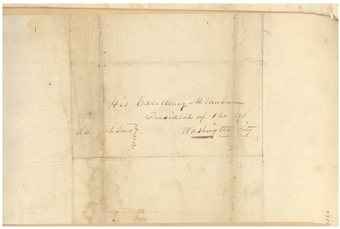 His Excellency M. Vanburen
President of the US
Washington City